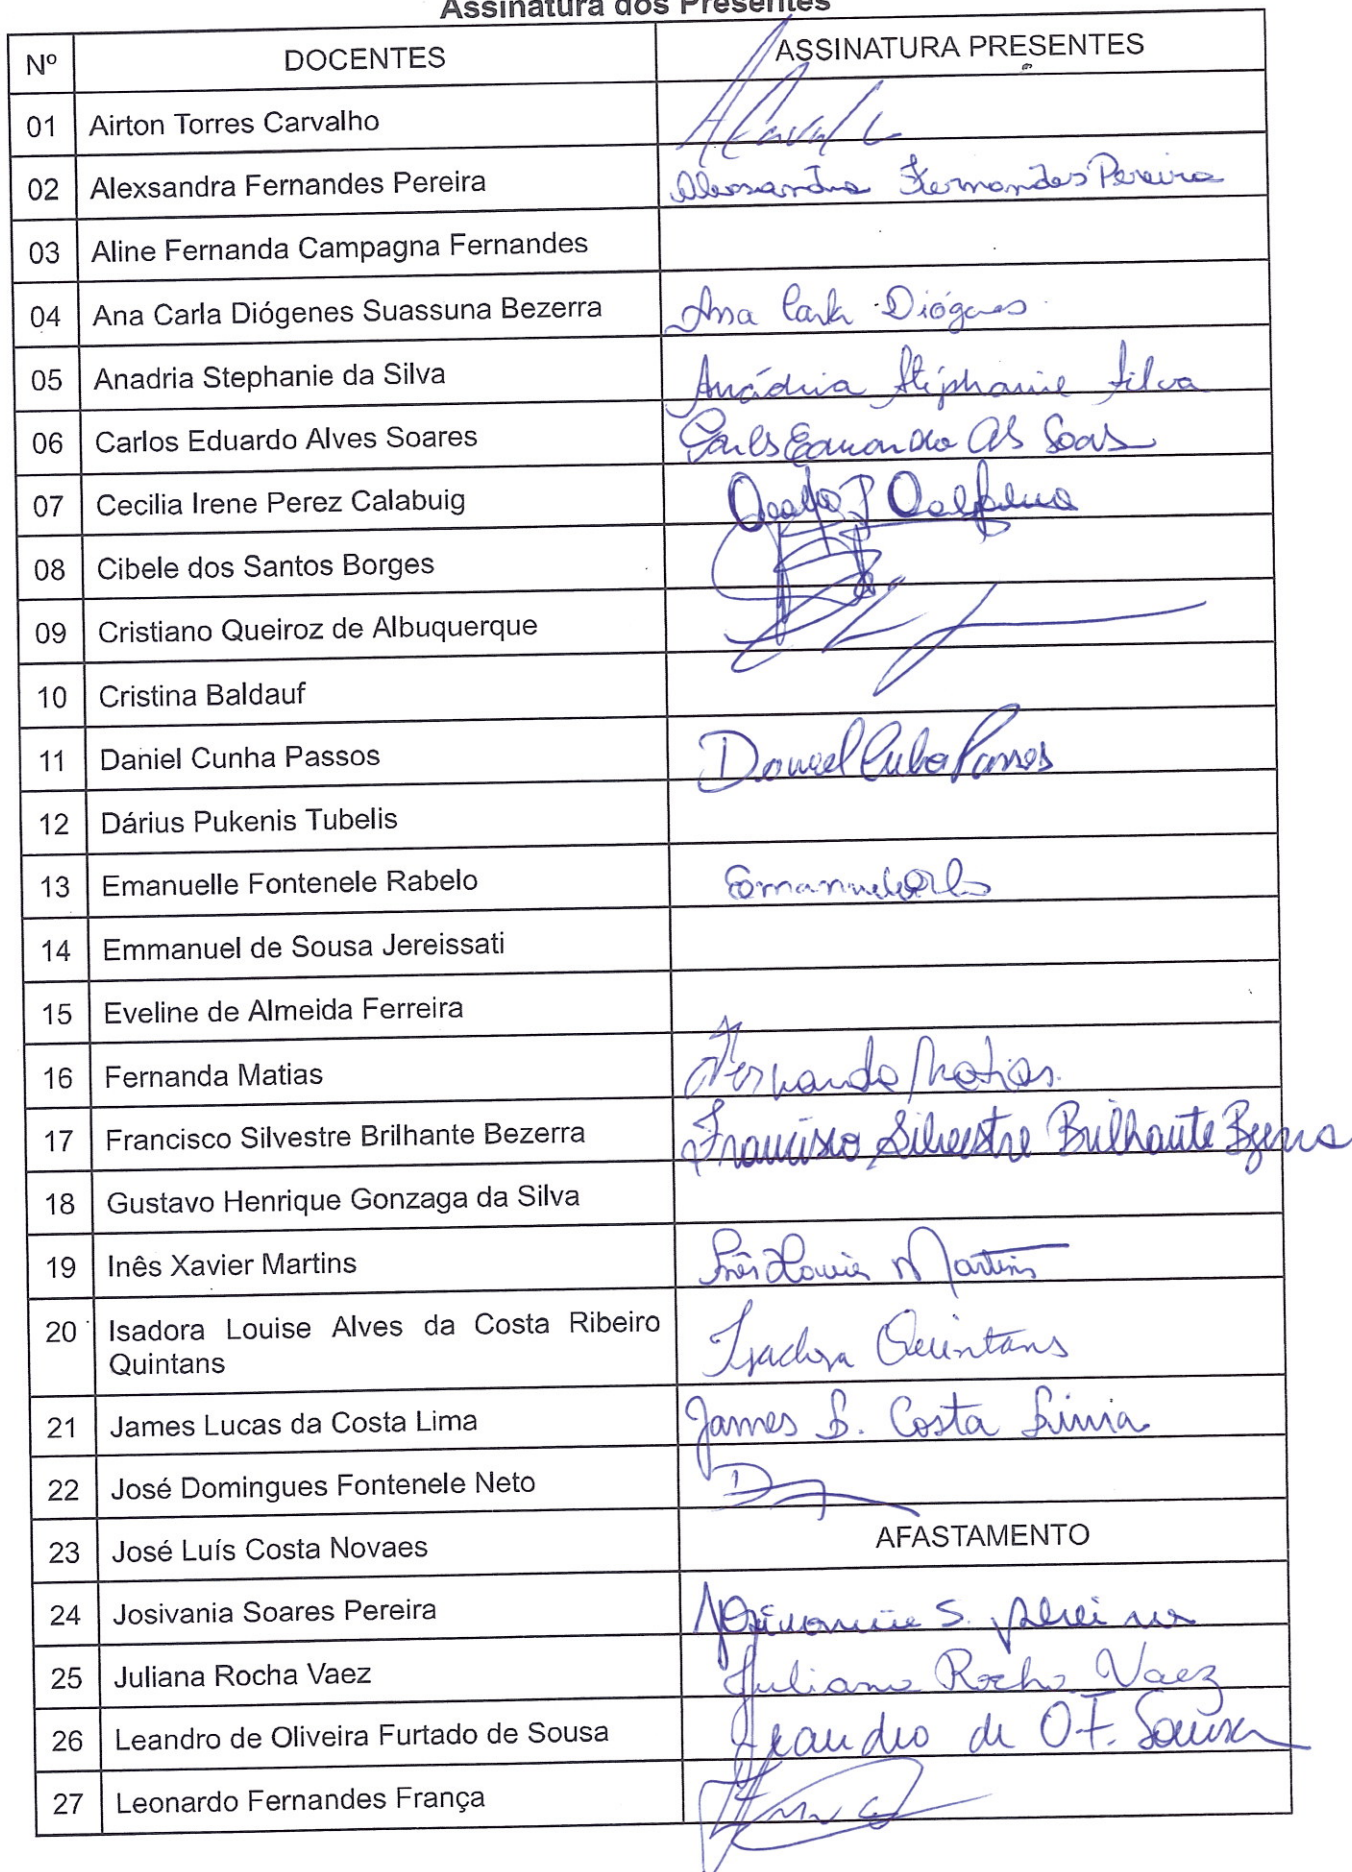 Assinatura dos Presentes
Nº DOCENTES ASSINATURA PRESENTES
01 Airton Torres Carvalho
02 Alexsandra Fernandes Pereira Alexsandra Fernandes Pereira
03 Aline Fernanda Campagna Fernandes
04 Ana Carla Diógenes Suassuna Bezerra Ana Carla Diógenes
05 Anadria Stephanie da Silva Anádria Stephanie Silva
06 Carlos Eduardo Alves Soares Carlos Eduardo
07 Cecilia Irene Perez Calabuig
08 Cibele dos Santos Borges
09 Cristiano Queiroz de Albuquerque
10 Cristina Baldauf
11 Daniel Cunha Passos Daniel Cunha Passos
12 Dárius Pukenis Tubelis
13 Emanuelle Fontenele Rabelo
14 Emmanuel de Sousa Jereissati
15 Eveline de Almeida Ferreira
16 Fernanda Matias Fernanda Matias.
17 Francisco Silvestre Brilhante Bezerra Francisco Silvestre Brilhante Bezerra
18 Gustavo Henrique Gonzaga da Silva
19 Inês Xavier Martins Inês Xavier Martins
20 Isadora Louise Alves da Costa Ribeiro Isadora Quintans
Quintans
21 James Lucas da Costa Lima James L. Costa Lima
22 José Domingues Fontenele Neto
23 José Luís Costa Novaes AFASTAMENTO
24 Josivania Soares Pereira Josivania S. Pereira
25 Juliana Rocha Vaez Juliana Rocha Vaez
26 Leandro de Oliveira Furtado de Sousa Leandro de O.F. Sousa
27 Leonardo Fernandes França